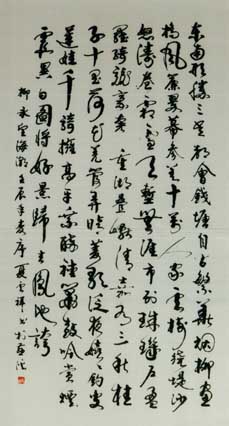 東南形勝三吳都會錢塘自古繁華烟柳畫
橋風簾翠幕參差十萬人家雲樹繞堤沙
怒濤卷霜雪天塹無涯市列珠璣户盈
羅綺競豪奢 重湖疊巘清嘉有三秋桂
子十里荷花羌管弄晴菱歌泛夜嬉嬉釣叟
蓮娃千騎擁高牙乘醉聽簫鼓吟賞煙
霞異日圖將好景歸去鳳池誇
柳永望海潮壬辰年麦序夏雲祥书於